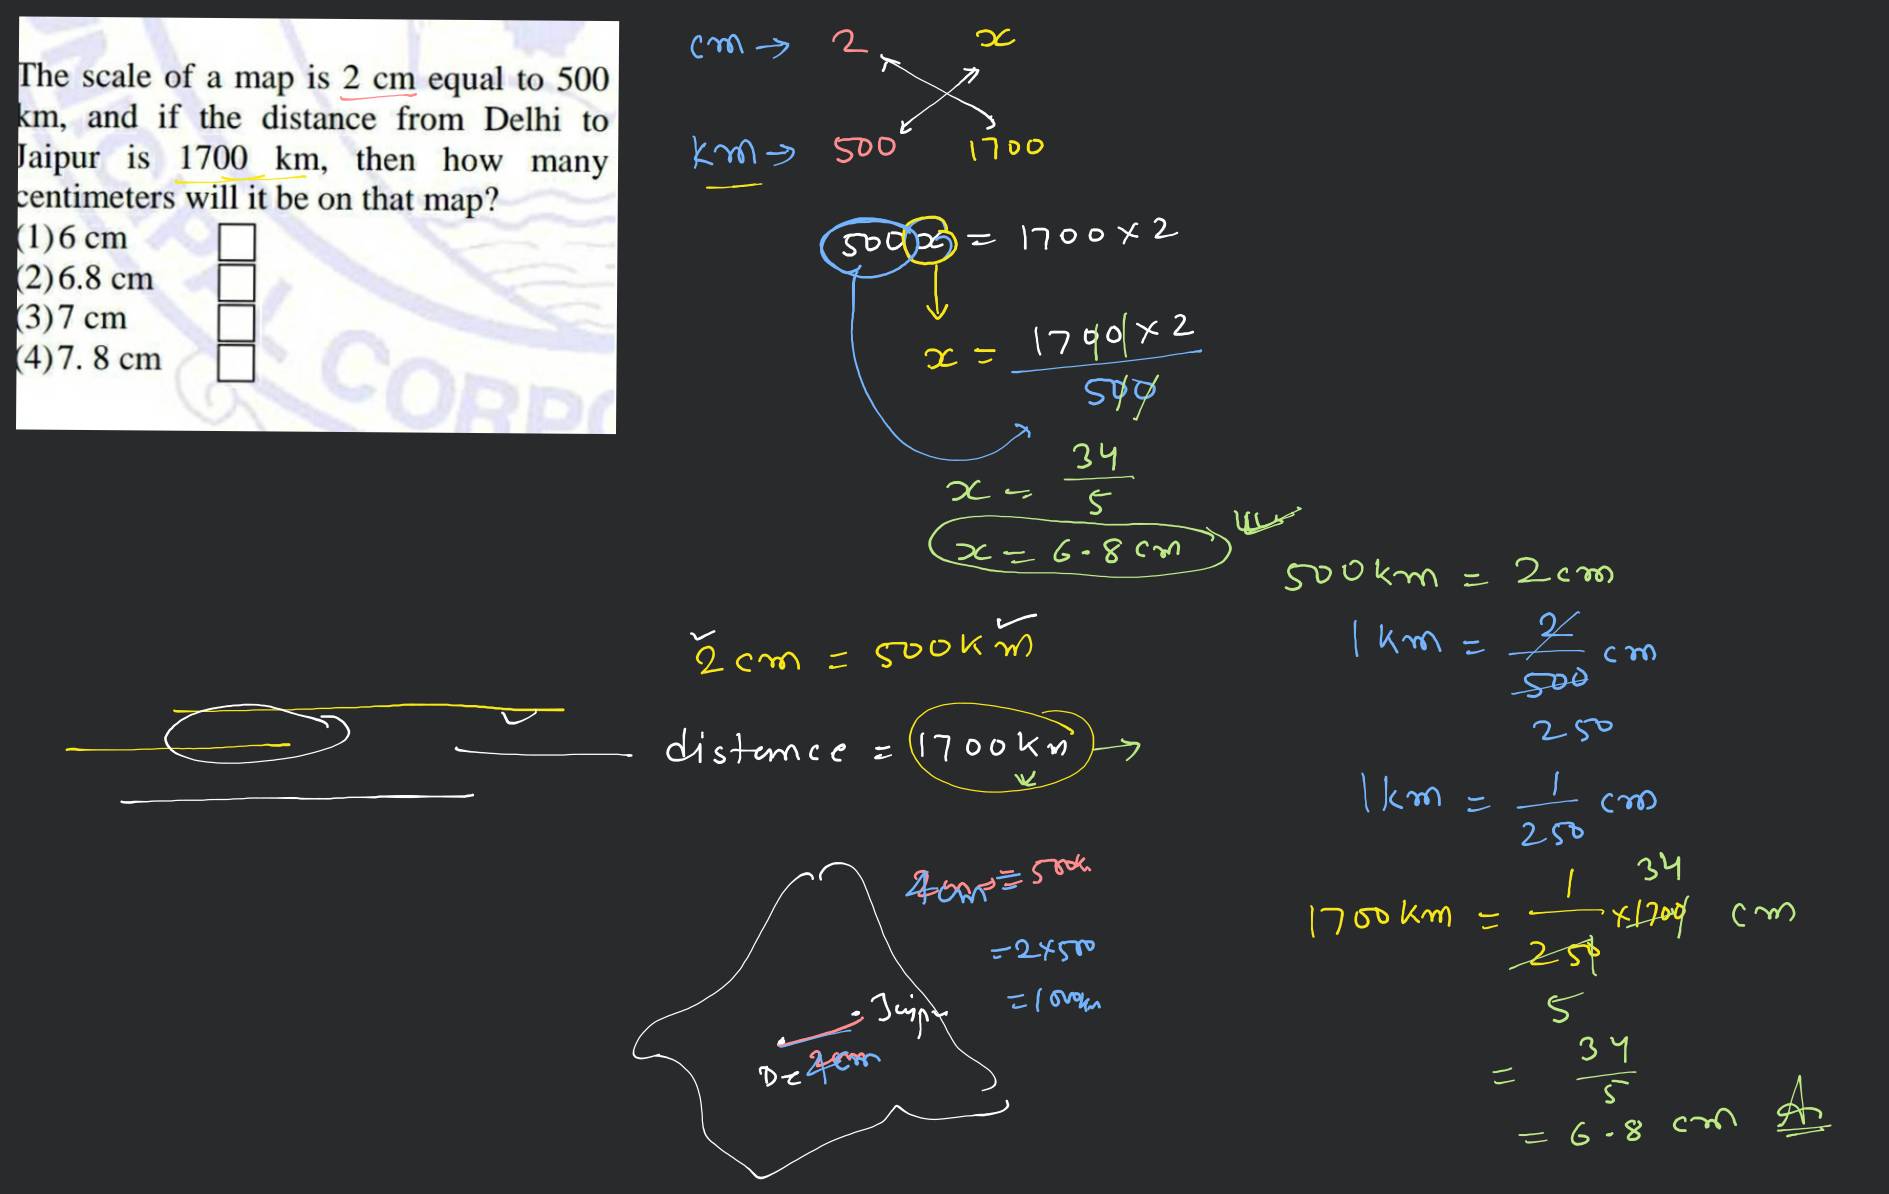 The scale of a map is 2 cm equal to 500
km, and if the distance from Delhi to
Jaipur is 1700 km, then how many
centimeters will it be on that map?
(1) 6 cm
(2) 6.8 cm
(3) 7 cm
(4) 7. 8 cm
CORP
cm → 2 x
km → 500 1700
500x = 1700 × 2
x = 1700 × 2
500
x = 34
5
x = 6.8 cm
2 cm = 500 km
distance = 1700 km →
= 2×500
Jaipur
4cm
500 km = 2 cm
1 km = 2 cm
500
250
1 km = 1 cm
250
34
1700 km = 1 ×1700 cm
250
5
= 34
5
= 6.8 cm A